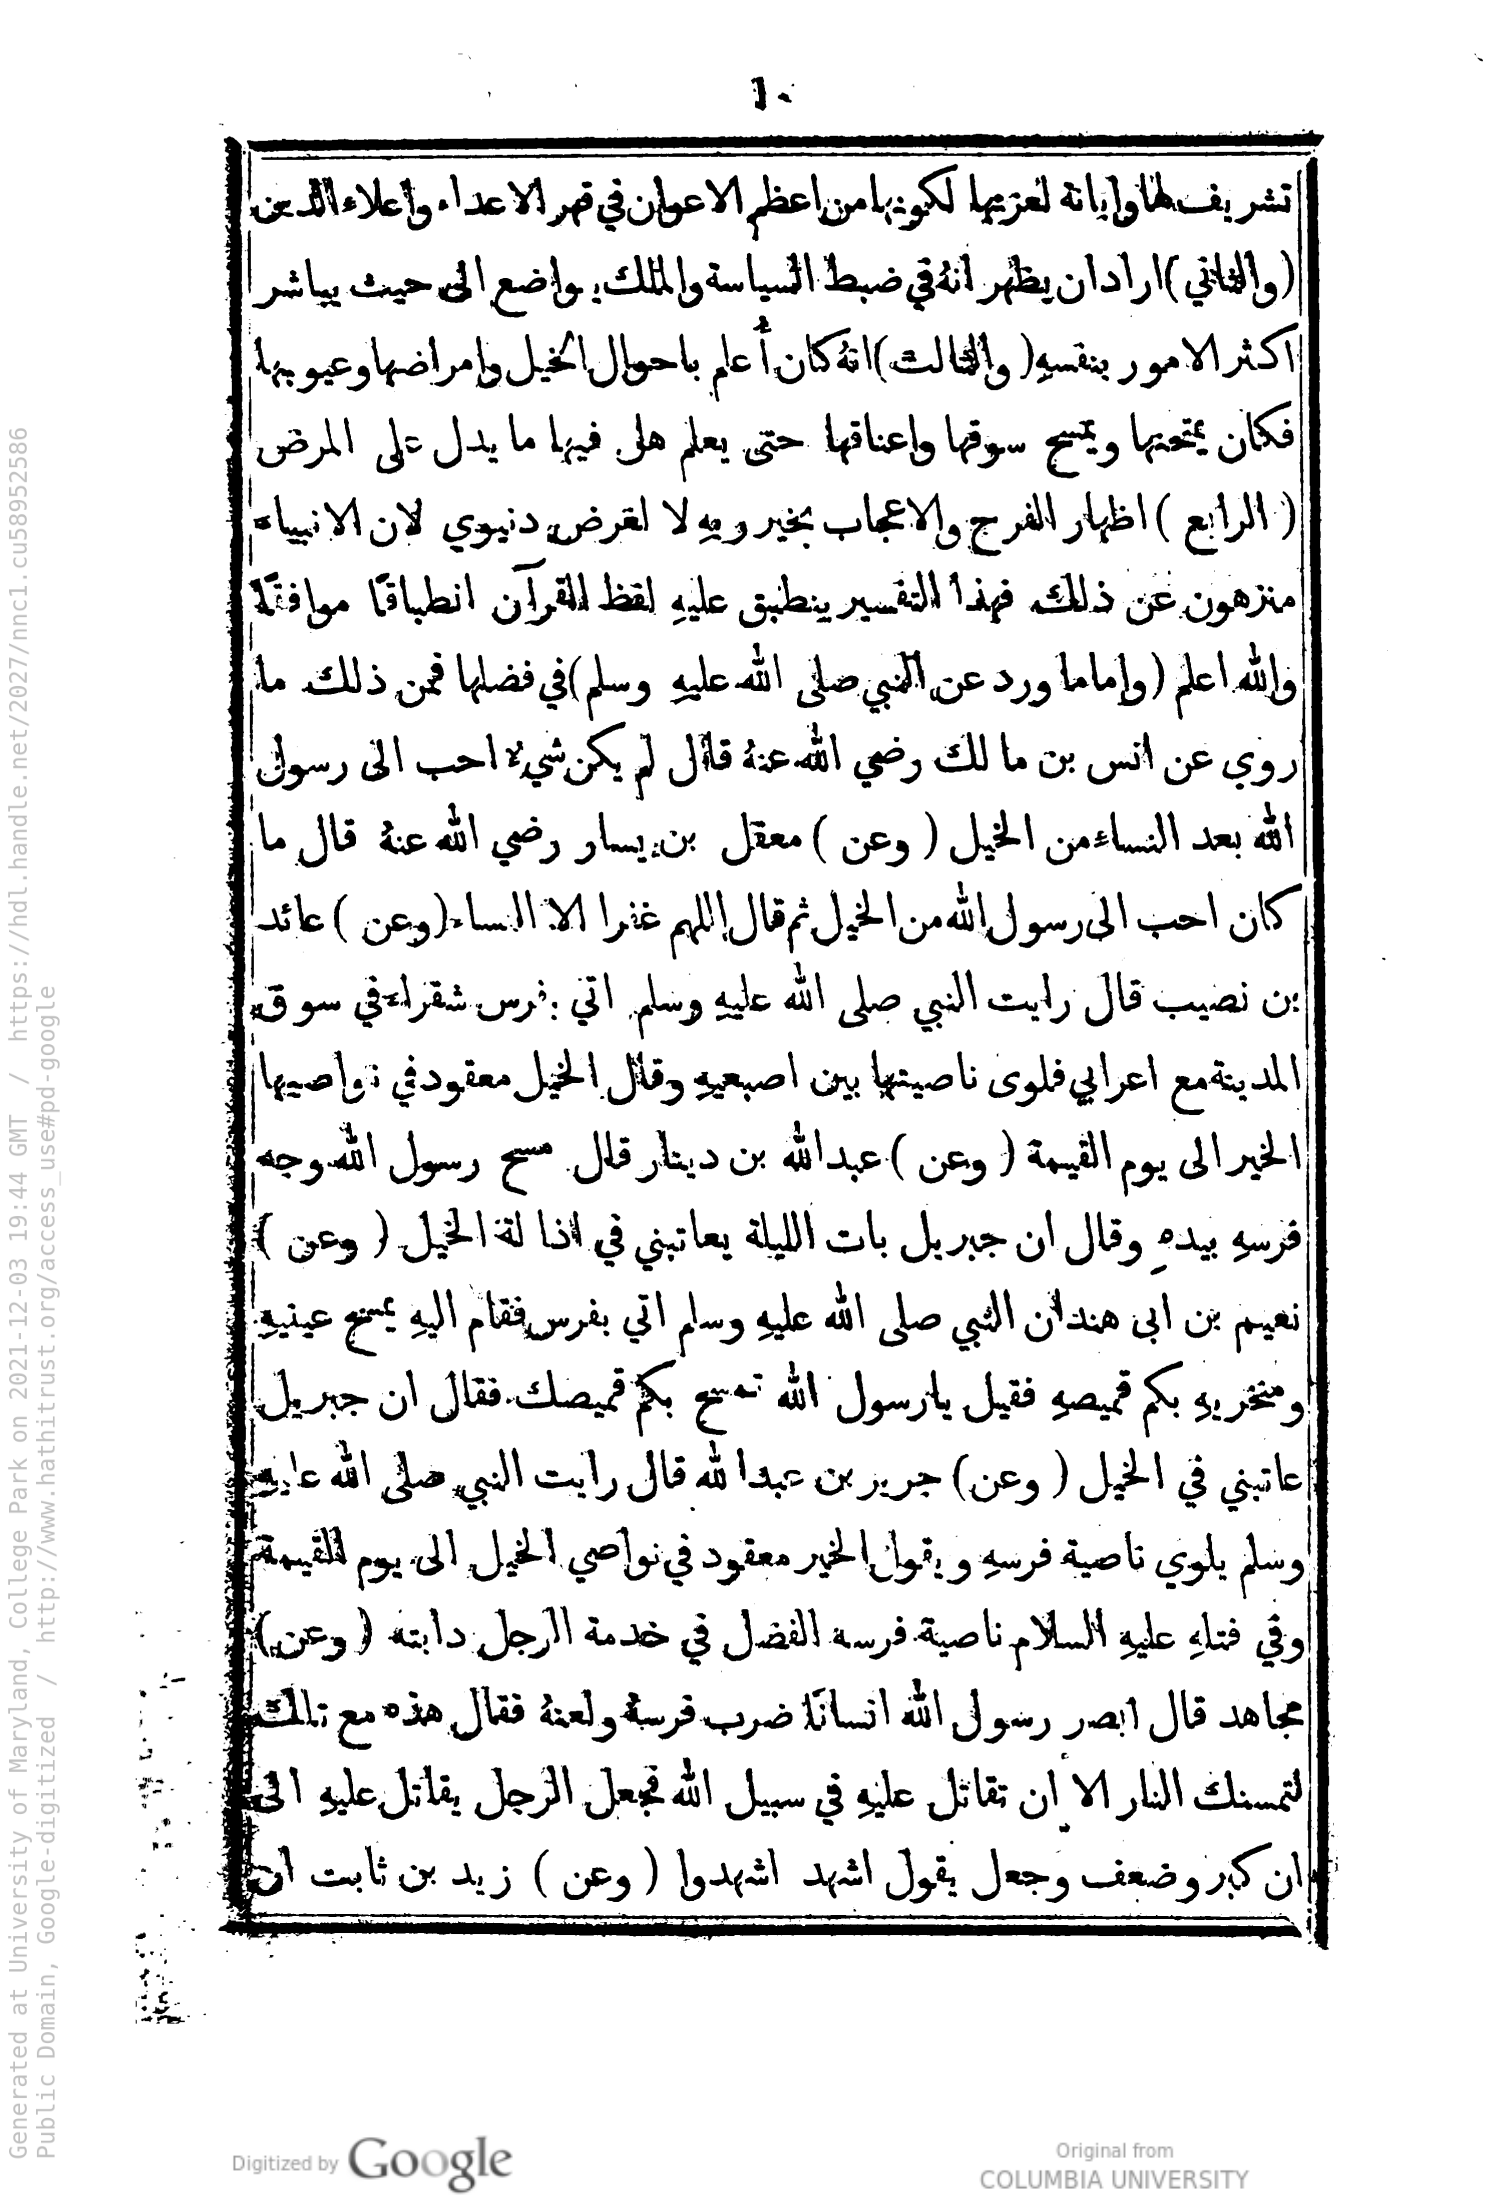 ١٠
تشريف لها وابانة لعزيها لكونها من اعظم الاعوان في قهر الاعداء واعلاء الدين
(والثاني) اراد ان يظهر انهُ في ضبط السياسة والملك يواضع الى حيث يباشر
اكثر الامور بنفسهِ (والثالث) انهُ كان أعلم باحوال الخيل وامراضها وعيوبها
فكان يمتحنها ويمسح سوقها واعناقها حتى يعلم هل فيها ما يدل على المرض
( الرابع ) اظهار الفرج والاعجاب بخير ربهِ لا لغرض دنيوي لان الانبياء
منزهون عن ذلك فهذا التفسير ينطبق عليهِ لفظ القرآن انطباقًا موافقًا
والله اعلم (واما ما ورد عن النبي صلى الله عليهِ وسلم) في فضلها فمن ذلك ما
روي عن انس بن مالك رضي الله عنهُ قال لم يكن شيءٌ احب الى رسول
الله بعد النساء من الخيل ( وعن ) معقل بن يسار رضي الله عنهُ قال ما
كان احب الى رسول الله من الخيل ثم قال اللهم غفرا الا النساء (وعن ) عائد
بن نصيب قال رايت النبي صلى الله عليهِ وسلم اتي بفرس شقراء في سوق
المدينة مع اعرابي فلوى ناصيتها بين اصبعيهِ وقال الخيل معقود في نواصيها
الخير الى يوم القيمة ( وعن ) عبدالله بن دينار قال مسح رسول الله وجه
فرسهِ بيدهِ وقال ان جبريل بات الليلة يعاتبني في اذالة الخيل ( وعن )
نعيم بن ابى هند ان النبي صلى الله عليهِ وسلم اتي بفرس فقام اليهِ يمسح عينيهِ
ومنخريهِ بكم قميصهِ فقيل يارسول الله تمسح بكم قميصك فقال ان جبريل
عاتبني في الخيل ( وعن) جرير بن عبدالله قال رايت النبي صلى الله عليهِ
وسلم يلوي ناصية فرسهِ ويقول الخير معقود في نواصي الخيل الى يوم القيمة
وفي فتلهِ عليهِ السلام ناصية فرسه الفضل في خدمة الرجل دابته ( وعن)
مجاهد قال ابصر رسول الله انسانًا ضرب فرسهُ ولعنهُ فقال هذه مع تلك
لتمسنك النار الا ان تقاتل عليهِ في سبيل الله فجعل الرجل يقاتل عليهِ الى
ان كبر وضعف وجعل يقول اشهد اشهدوا ( وعن ) زيد بن ثابت ان
Digitized by Google
Original from
COLUMBIA UNIVERSITY
Generated at University of Maryland, College Park on 2021-12-03 19:44 GMT / https://hdl.handle.net/2027/nnc1.cu58952586
Public Domain, Google-digitized / http://www.hathitrust.org/access_use#pd-google